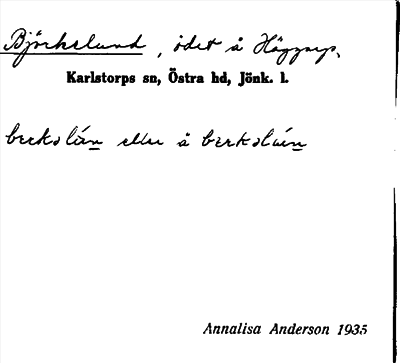 Björkelund, ödet å Häggarp,
Karlstorps sn, Östra hd, Jönk. l.
eller å
Annalisa Anderson 1935